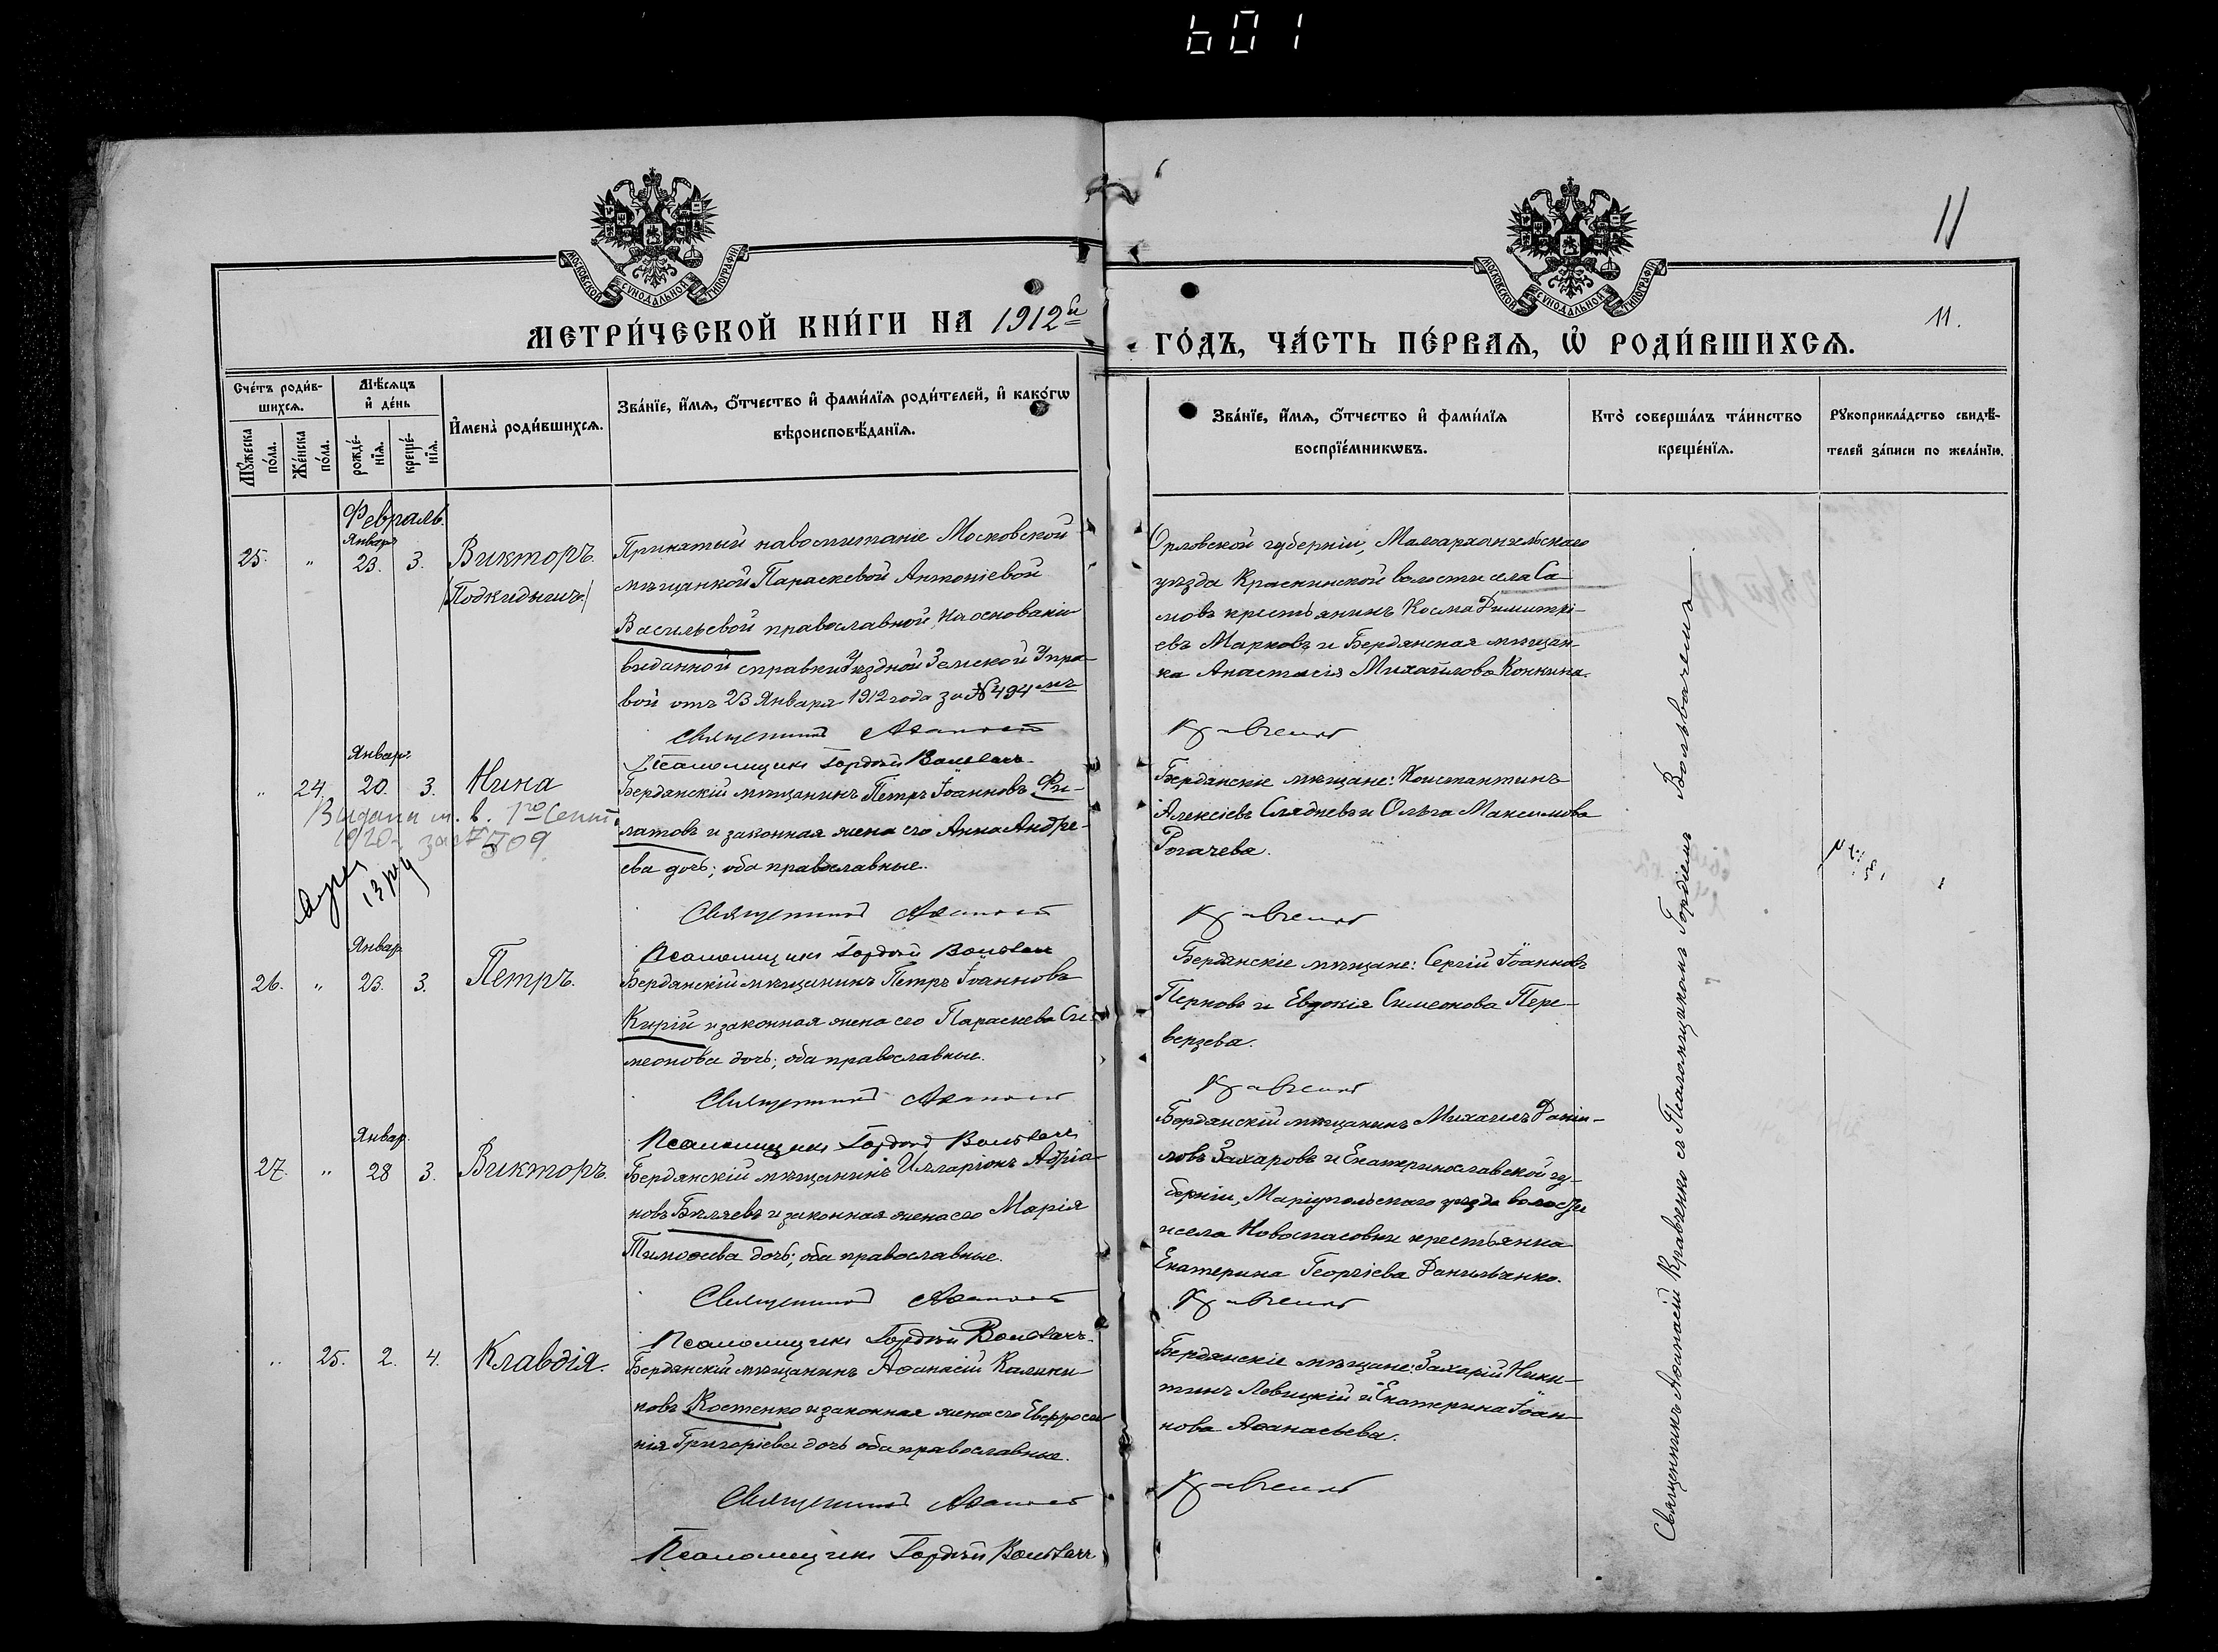 601
11
МОСКОВСКОЙ СѴНОДАЛЬНОЙ ТИПОГРАФІИ
МОСКОВСКОЙ СѴНОДАЛЬНОЙ ТИПОГРАФІИ
МЕТРИ́ЧЕСКОЙ КНИ́ГИ НА 1912й
ГО́ДЪ, ЧА́СТЬ ПЕ́РВАѦ, Ѡ҆ РОДИ́ВШИХСѦ.
11.
Сче́тъ роди́в-
шихсѧ.
Мѣ́сѧцъ
и҆ де́нь
Мꙋ́жеска
по́ла.
Же́нска
по́ла.
рожде́-
нїѧ.
креще́-
нїѧ.
И҆мена̀ роди́вшихсѧ.
Зва́нїе, и҆́мѧ, ѻ҆́тчество и҆ фами́лїѧ роди́телей, и҆ како́гѡ
вѣроисповѣ́данїѧ.
Зва́нїе, и҆́мѧ, ѻ҆́тчество и҆ фами́лїѧ
воспрїе́мникѡвъ.
Кто̀ соверша́лъ та́инство
креще́нїѧ.
Рꙋкоприкла́дство свидѣ́-
телей за́писи по жела́нїю.
Февраль.
Январь
25. " 23. 3. Викторъ.
/Подкидышъ./
Принятый на воспитаніе Московской
мѣщанкой Параскевой Антоніевой
Васильевой православной, На основаніи
выданной справки Уѣздной Земской Упра-
вой отъ 23 Января 1912 года за № 494мъ
Священникъ Аѳанасій
Псаломщикъ Гордій Вольвачъ
Орловской губерніи, Малоархангельскаго
уѣзда Краснинской волости села Са-
мовъ крестьянинъ Косма Димитрі-
евъ Марковъ и Бердянская мѣщан-
ка Анастасія Михайлова Конкина.
Кравченко
Январ.
" 24. 20. 3. Нина
Выдана м. в. 1го Сент.
1920 г. за № 509.
Бердянскій мѣщанинъ Петръ Іоанновъ Фи-
латовъ и законная жена его Анна Андре-
ева дочь; оба православные.
Священникъ Аѳанасій
Псаломщикъ Гордій Вольвачъ
Бердянскіе мѣщане: Константинъ
Алексіевъ Сляднев и Ольга Максимова
Рогачева.
Кравченко
Январ.
26. " 23. 3. Петръ.
Бердянскій мѣщанинъ Петръ Іоанновъ
Кирій и законная жена его Параскева Си-
меонова дочь; оба православные.
Священникъ Аѳанасій
Псаломщикъ Гордій Вольвачъ
Бердянскіе мѣщане: Сергій Іоанновъ
Перновъ и Евдокія Симеонова Пере-
верзева.
Кравченко
Январ.
27. " 28 3. Викторъ.
Бердянскій мѣщанинъ Илларіонъ Адріа-
новъ Бѣляевъ и законная жена его Марія
Тимоѳеева дочь; оба православные.
Священникъ Аѳанасій
Псаломщикъ Гордій Вольвачъ.
Бердянскій мѣщанинъ Михаилъ Даніи-
ловъ Захаровъ и Екатеринославской гу-
берніи, Маріупольскаго уѣзда волости
и села Новоспасовки крестьянка
Екатерина Георгіева Данильченко.
Кравченко
" 25. 2. 4. Клавдія.
Бердянскій мѣщанинъ Аѳанасій Калини-
ковъ Костенко и законная жена его Евфроси-
нія Григоріева дочь оба православные.
Священникъ Аѳанасій
Псаломщикъ Гордій Вольвачъ
Бердянскіе мѣщане: Захарій Ники-
тинъ Левицкій и Екатерина Іоан-
нова Аѳанасьева.
Кравченко
Священникъ Аѳанасій Кравченко съ Псаломщикомъ Гордіемъ Вольвачемъ